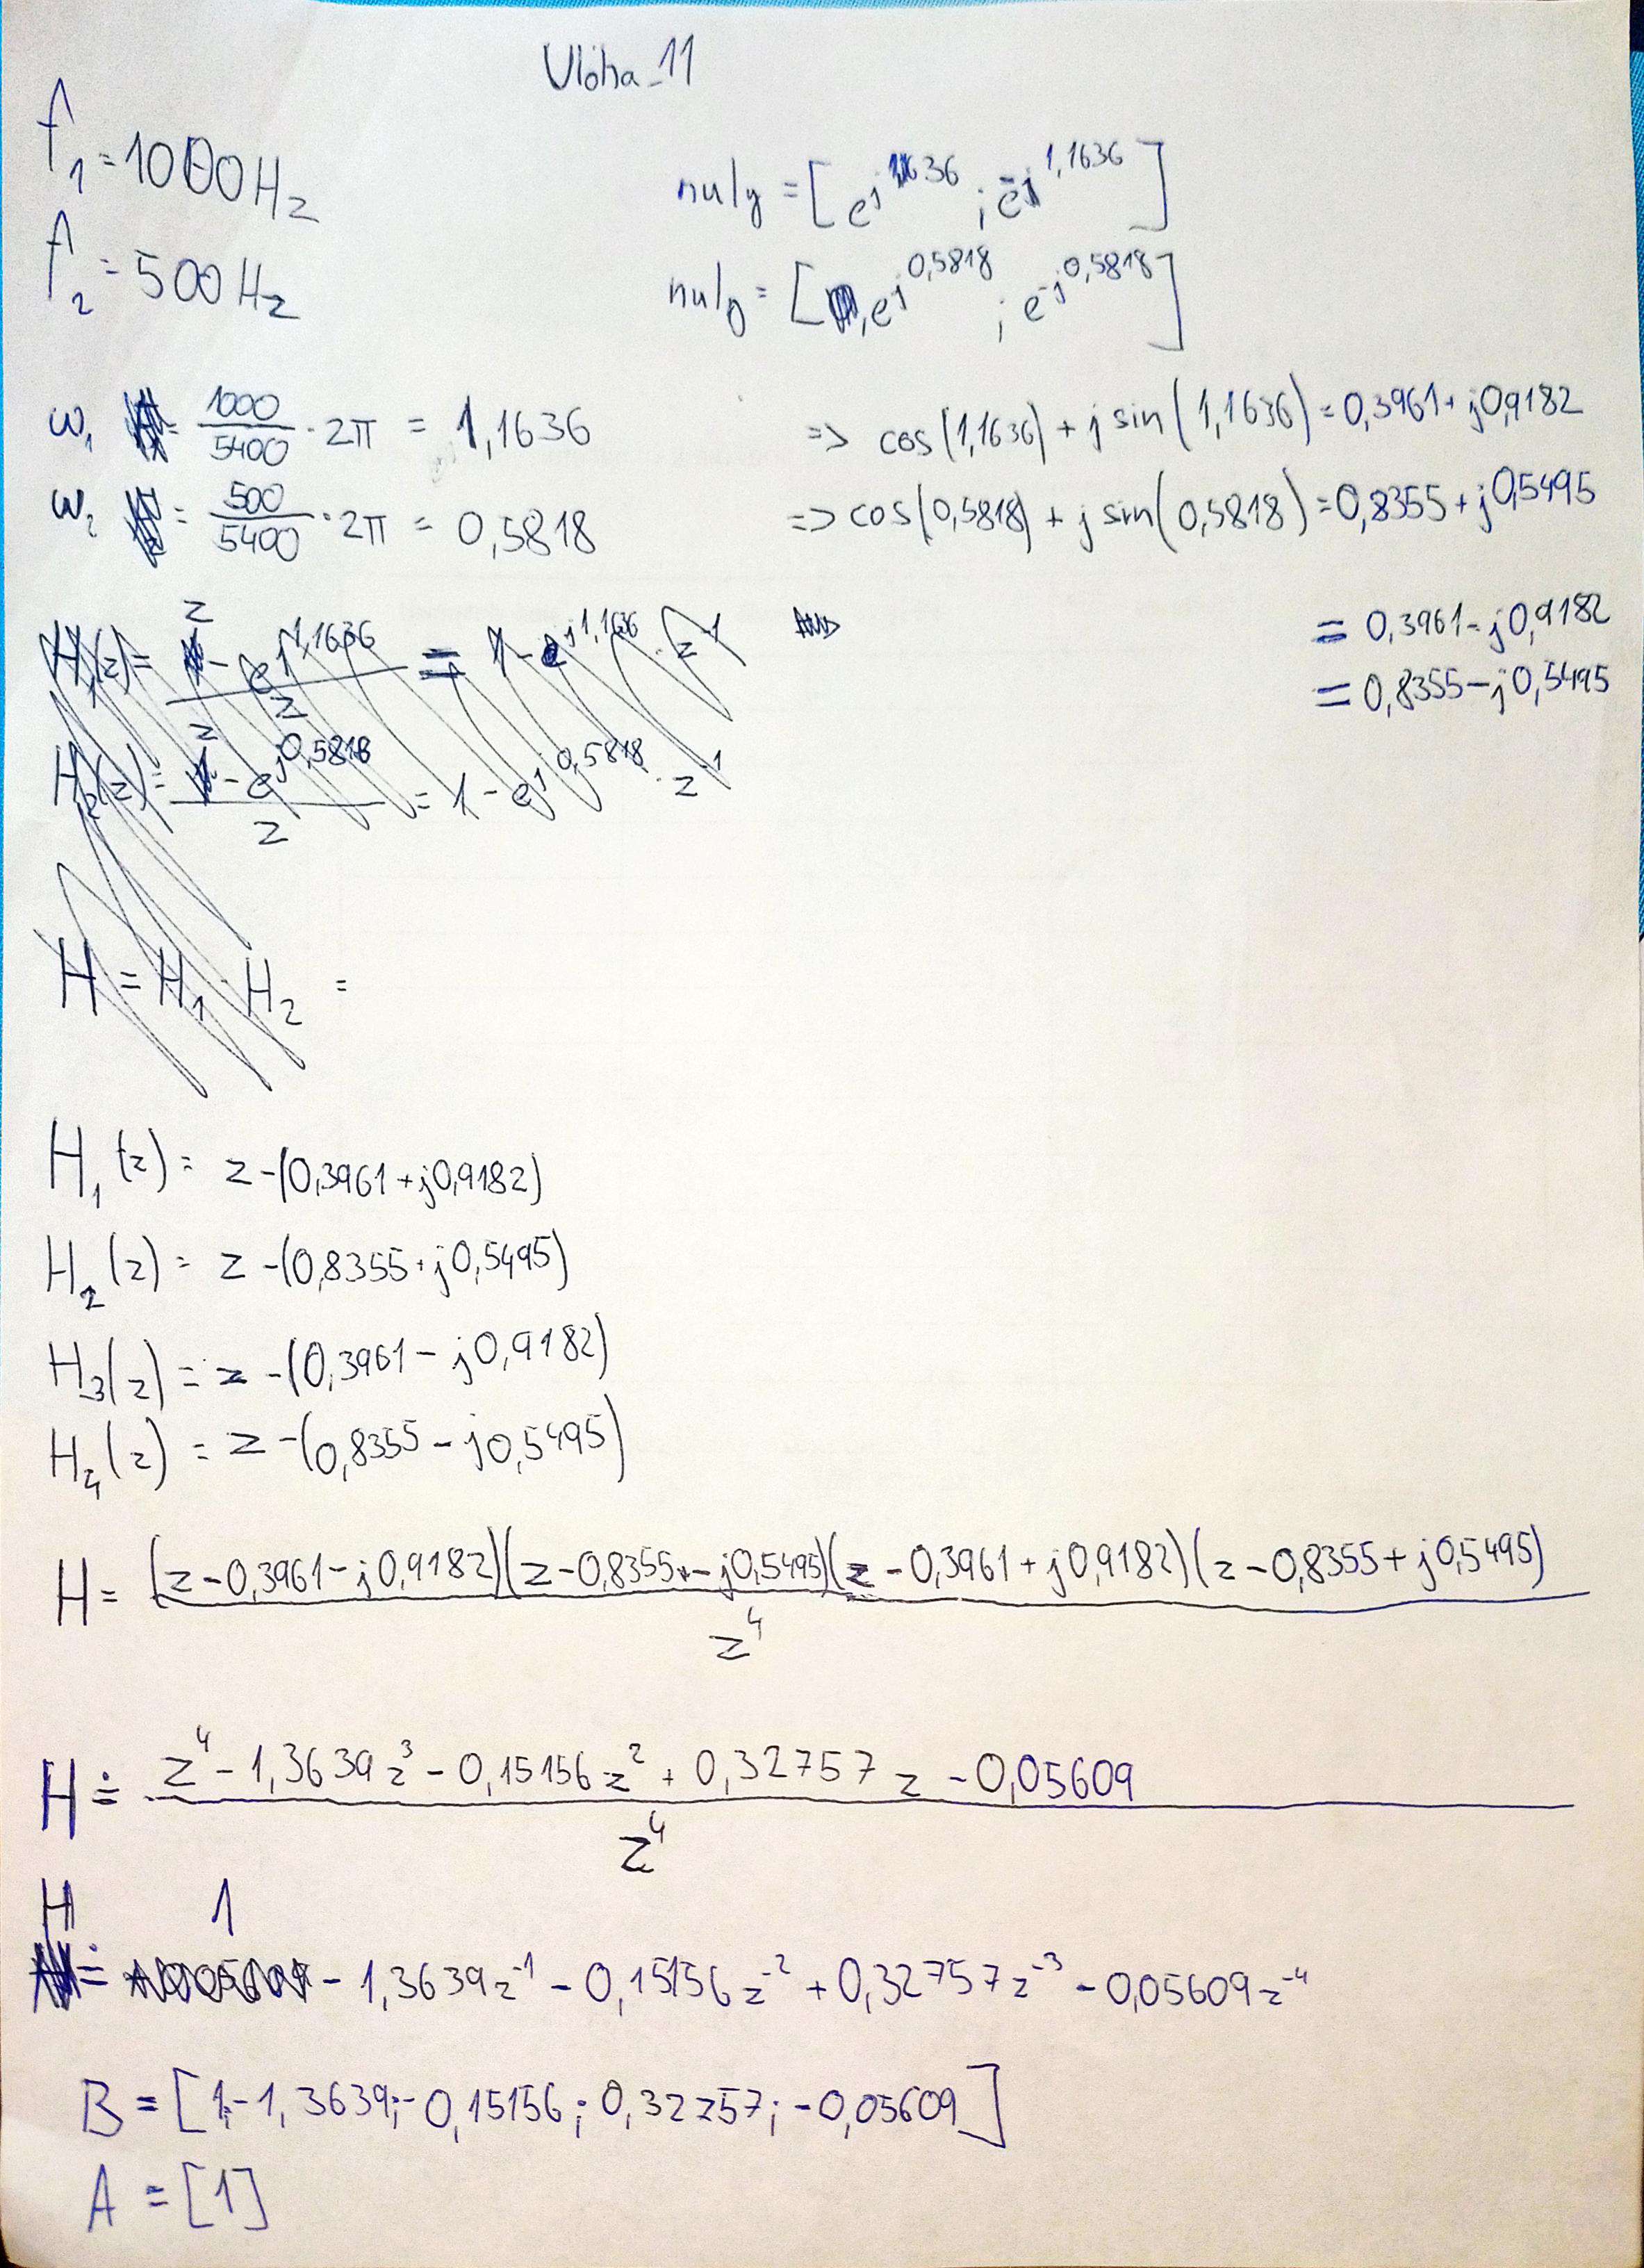 Úloha_11
f₁ = 1000 Hz
f₂ = 500 Hz
nuly = [e^j1,1636 ; e^-j1,1636]
nuly = [e^j0,5818 ; e^-j0,5818]
ω₁ = 1000/5400 · 2π = 1,1636
ω₂ = 500/5400 · 2π = 0,5818
=> cos(1,1636) + j sin(1,1636) = 0,3961 + j0,9182
=> cos(0,5818) + j sin(0,5818) = 0,8355 + j0,5495
= 0,3961 - j0,9182
= 0,8355 - j0,5495
H₁(z) = (z - e^j1,1636)/z = 1 - e^j1,1636 · z⁻¹
H₂(z) = (z - e^j0,5818)/z = 1 - e^j0,5818 · z⁻¹
H = H₁ · H₂ =
H₁(z) = z - (0,3961 + j0,9182)
H₂(z) = z - (0,8355 + j0,5495)
H₃(z) = z - (0,3961 - j0,9182)
H₄(z) = z - (0,8355 - j0,5495)
H = (z - 0,3961 - j0,9182)(z - 0,8355 - j0,5495)(z - 0,3961 + j0,9182)(z - 0,8355 + j0,5495)
z⁴
H ≐ z⁴ - 1,3639z³ - 0,15156z² + 0,32757z - 0,05609
z⁴
H ≐ 1 - 1,3639z⁻¹ - 0,15156z⁻² + 0,32757z⁻³ - 0,05609z⁻⁴
B = [1; -1,3639; -0,15156; 0,32757; -0,05609]
A = [1]